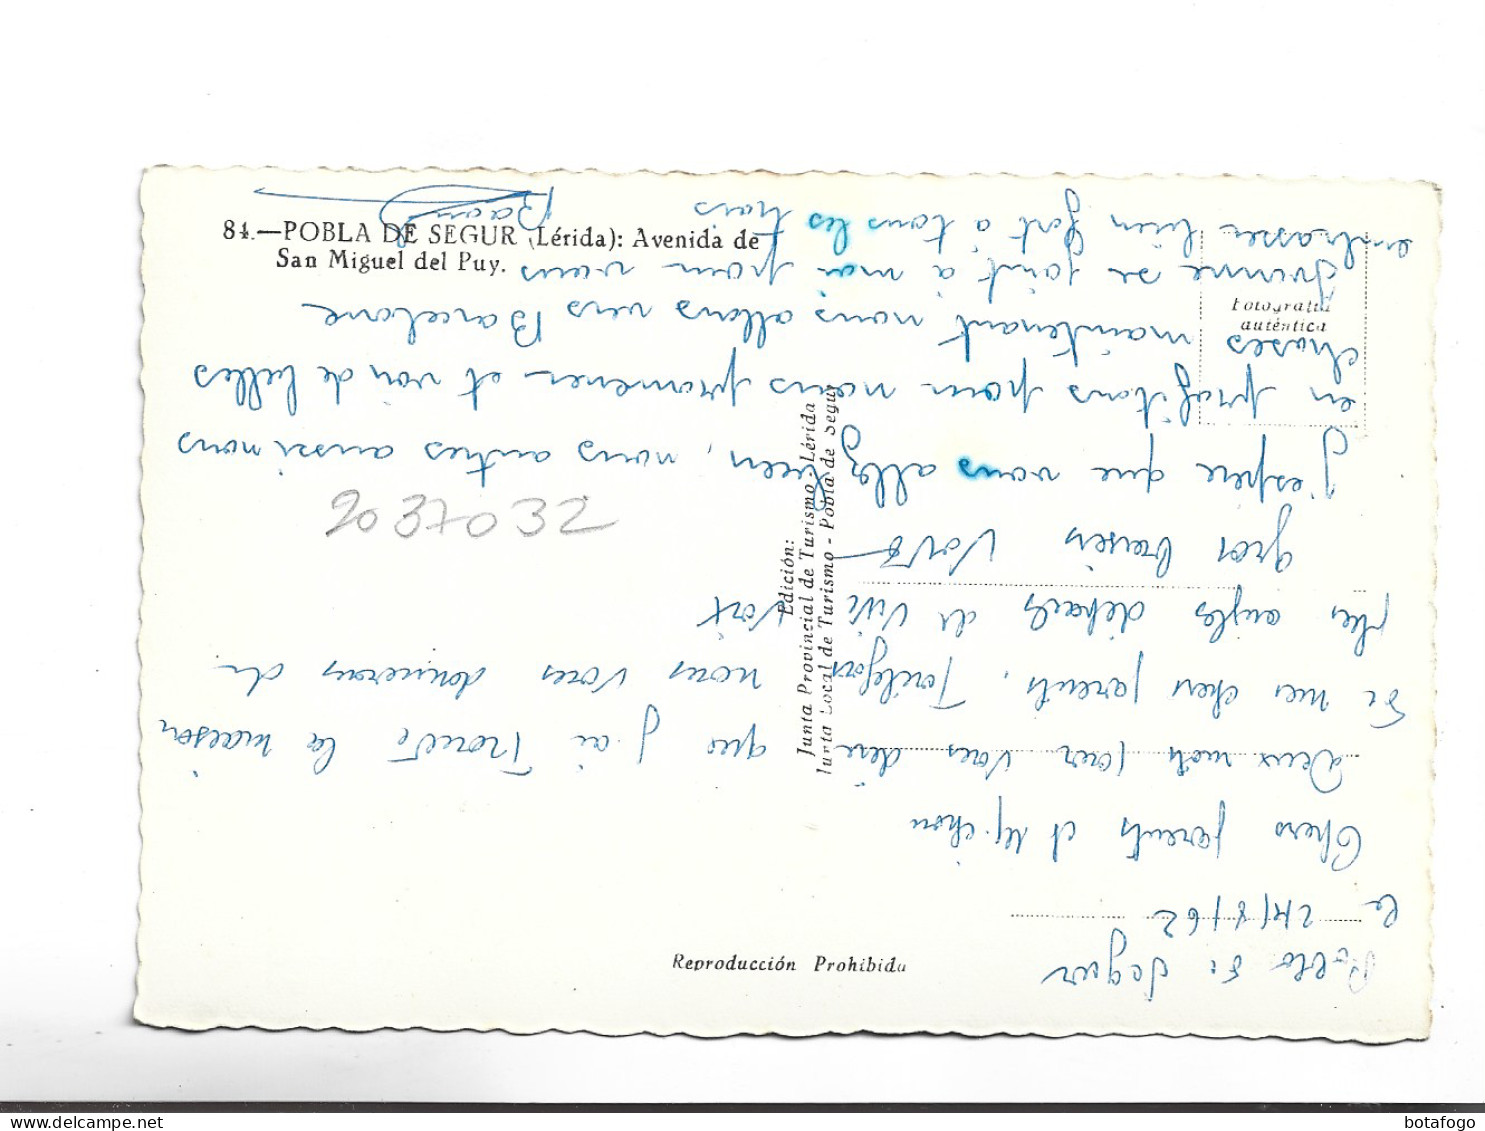 84.—POBLA DE SEGUR (Lérida): Avenida de
San Miguel del Puy.
Fotografía
auténtica
Edición:
Junta Provincial de Turismo - Lérida
Junta Local de Turismo - Pobla de Segur
Reproducción Prohibida
2037032
Pobla de Segur
le 24/8/62
Chers parents et
Deux mots pour vous dire que j'ai trouvé la maison
mes chers parents. nous vous donnerons de
plus amples détails de vive voix
gros baisers
J'espère que vous allez bien, nous autres aussi nous
en profitons pour nous promener et voir de belles
choses maintenant nous allons vers Barcelone
se joint à moi pour vous
embrasser bien fort à tous les trois
botafogo